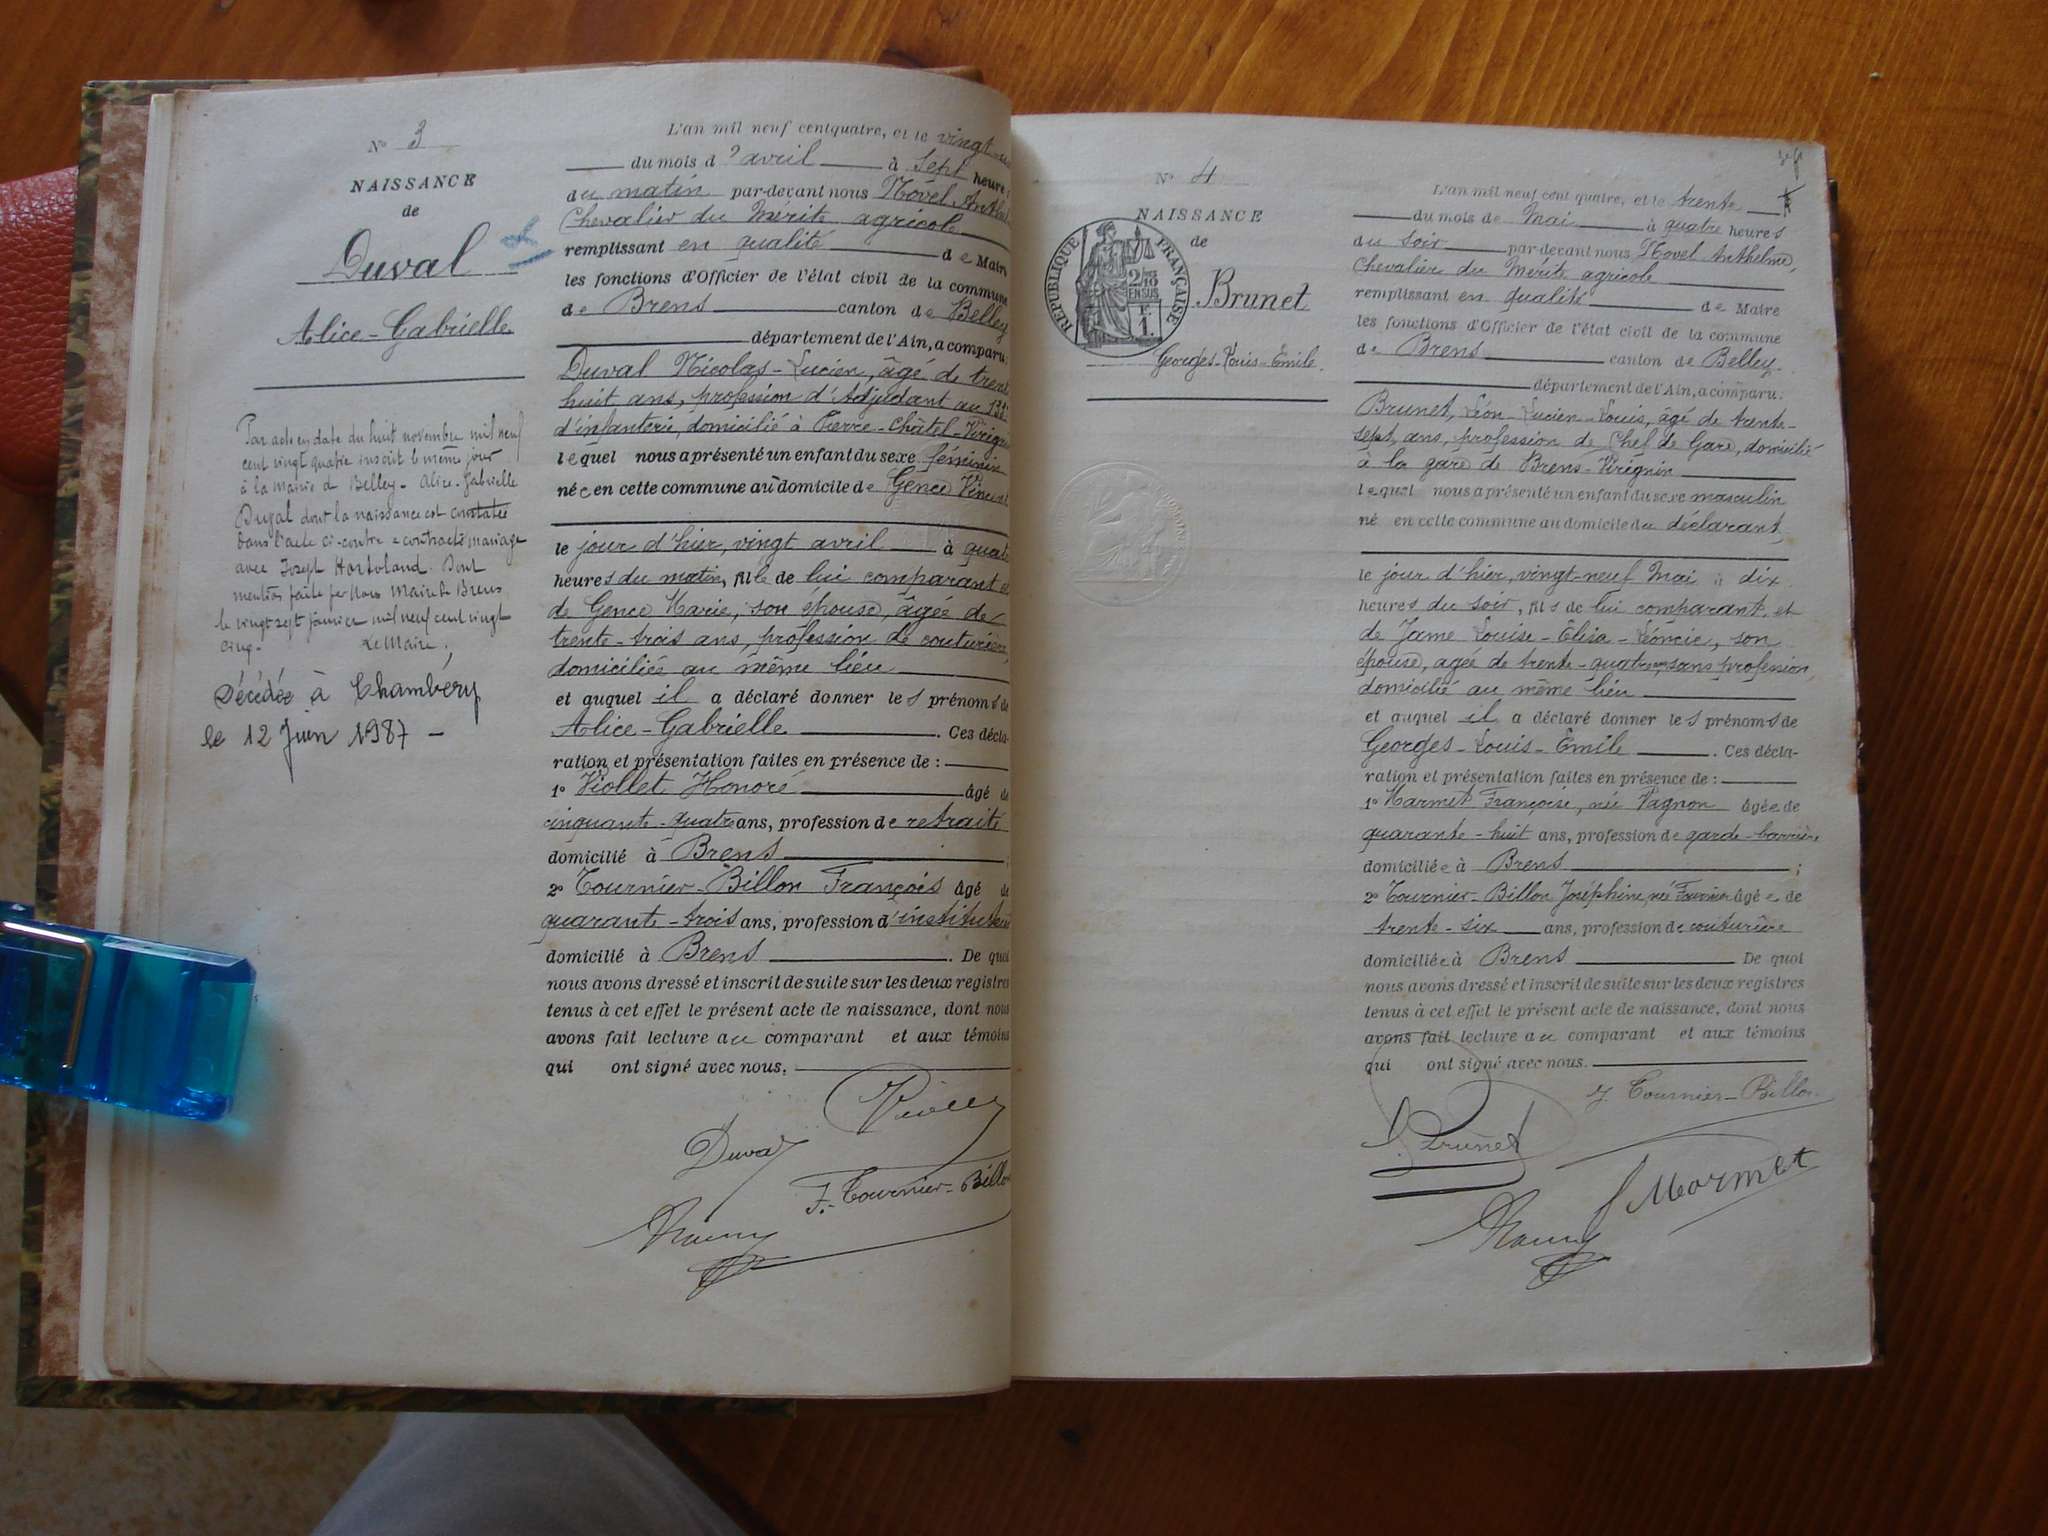 N° 3
NAISSANCE
de
Duval
Alice-Gabrielle
Par acte en date du huit novembre mil neuf
cent vingt quatre inscrit le même jour
à la mairie d Belley - Alice-Gabrielle
Duval dont la naissance est constatée
dans l'acte ci-contre a contracté mariage
avec Joseph Dont
mention faite par Nous Maire de Brens
le vingt sept janvier mil neuf cent vingt
cinq- Le Maire,
Décédée à Chambéry
le 12 Juin 1987 -
L'an mil neuf cent quatre, et le vingt-un
du mois d'avril à Sept heures
du matin par-devant nous Novel Anthel
Chevalier du Mérite agricole
remplissant en qualité de Maire
les fonctions d'Officier de l'état civil de la commune
de Brens canton de Belley
département de l'Ain, a comparu:
Duval Nicolas-Lucien, âgé de trente
huit ans, profession d'Adjudant au 133e
d'infanterie, domicilié à Pierre-Châtel-Virign
lequel nous a présenté un enfant du sexe féminin
née en cette commune au domicile de Gence Vincent
le jour d'hier, vingt avril à quatre
heures du matin, fille de lui comparant et
de Gence Marie, son épouse, âgée de
trente-trois ans, profession de couturière,
domiciliée au même lieu
et auquel il a déclaré donner les prénoms de
Alice-Gabrielle. Ces décla-
ration et présentation faites en présence de:
1° Viollet Honoré âgé de
cinquante-quatre ans, profession de retraité
domicilié à Brens;
2° Tournier-Billon François âgé de
quarante-trois ans, profession d'instituteur
domicilié à Brens. De quoi
nous avons dressé et inscrit de suite sur les deux registres
tenus à cet effet le présent acte de naissance, dont nous
avons fait lecture au comparant et aux témoins
qui ont signé avec nous.
Duval
F. Tournier-Billon
N° 4
NAISSANCE
de
RÉPUBLIQUE FRANÇAISE
2/10 EN SUS
1F
Brunet
Georges-Louis-Emile.
L'an mil neuf cent quatre, et le trente
du mois de Mai à quatre heures
du soir par-devant nous Novel Anthelme,
Chevalier du Mérite agricole
remplissant en qualité de Maire
les fonctions d'Officier de l'état civil de la commune
de Brens canton de Belley
département de l'Ain, a comparu:
Brunet, Léon-Lucien-Louis, âgé de trente-
sept ans, profession de Chef de Gare, domicilié
à la gare de Brens-Virignin
lequel nous a présenté un enfant du sexe masculin
né en cette commune au domicile du déclarant
le jour d'hier, vingt-neuf Mai à dix
heures du soir, fils de lui comparant, et
de Jame Louise-Élisa-Léoncie, son
épouse, agée de trente-quatre ans, sans profession,
domicilié au même lieu
et auquel il a déclaré donner les prénoms de
Georges-Louis-Emile. Ces décla-
ration et présentation faites en présence de:
1° Marmet Françoise, née Pagnon âgée de
quarante-huit ans, profession de garde-barrière
domiciliée à Brens;
2° Tournier-Billon Joséphine, née Fournier âgée de
trente-six ans, profession de couturière
domiciliée à Brens De quoi
nous avons dressé et inscrit de suite sur les deux registres
tenus à cet effet le présent acte de naissance, dont nous
avons fait lecture au comparant et aux témoins
qui ont signé avec nous.
J. Tournier-Billon
L. Brunet
f Marmet